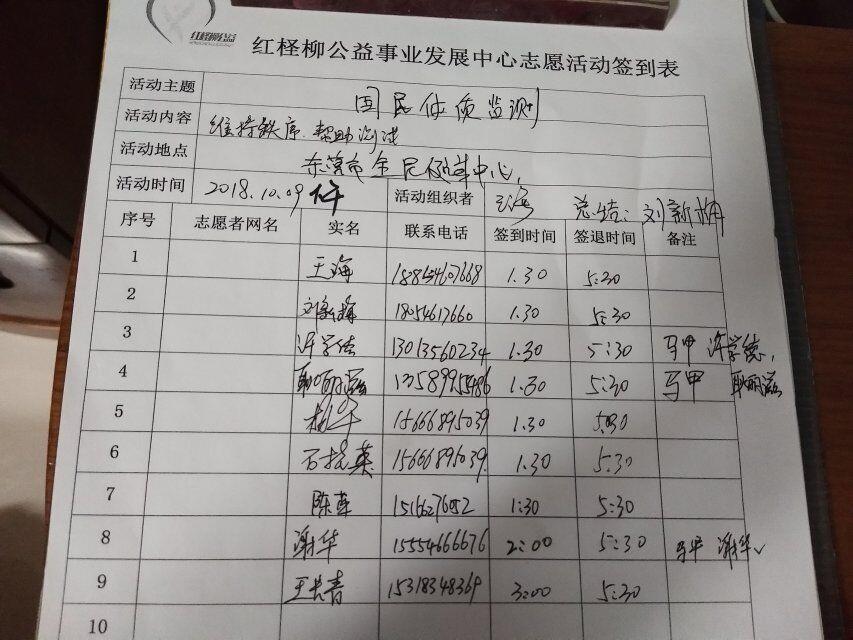 红柽柳公益
红柽柳公益事业发展中心志愿活动签到表
活动主题 国民体质监测
活动内容 维持秩序 帮助测试
活动地点 东营市全民健身中心
活动时间 2018.10.09 下午 活动组织者 王海 总结:刘新梅
序号 志愿者网名 实名 联系电话 签到时间 签退时间 备注
1 王海 18854607668 1.30 5:30
2 1.30 5:30
3 许学德 13013560234 1.30 5:30 马甲 许学德
4 1.30 5:30 马甲
5 15666895039 1.30 5:30
6 15666895039 1.30 5:30
7 陈華 1:30 5:30
8 谢华 15554666676 2:00 5:30 马甲 谢华
9 王长青 15318348369 3:00 5:30
10